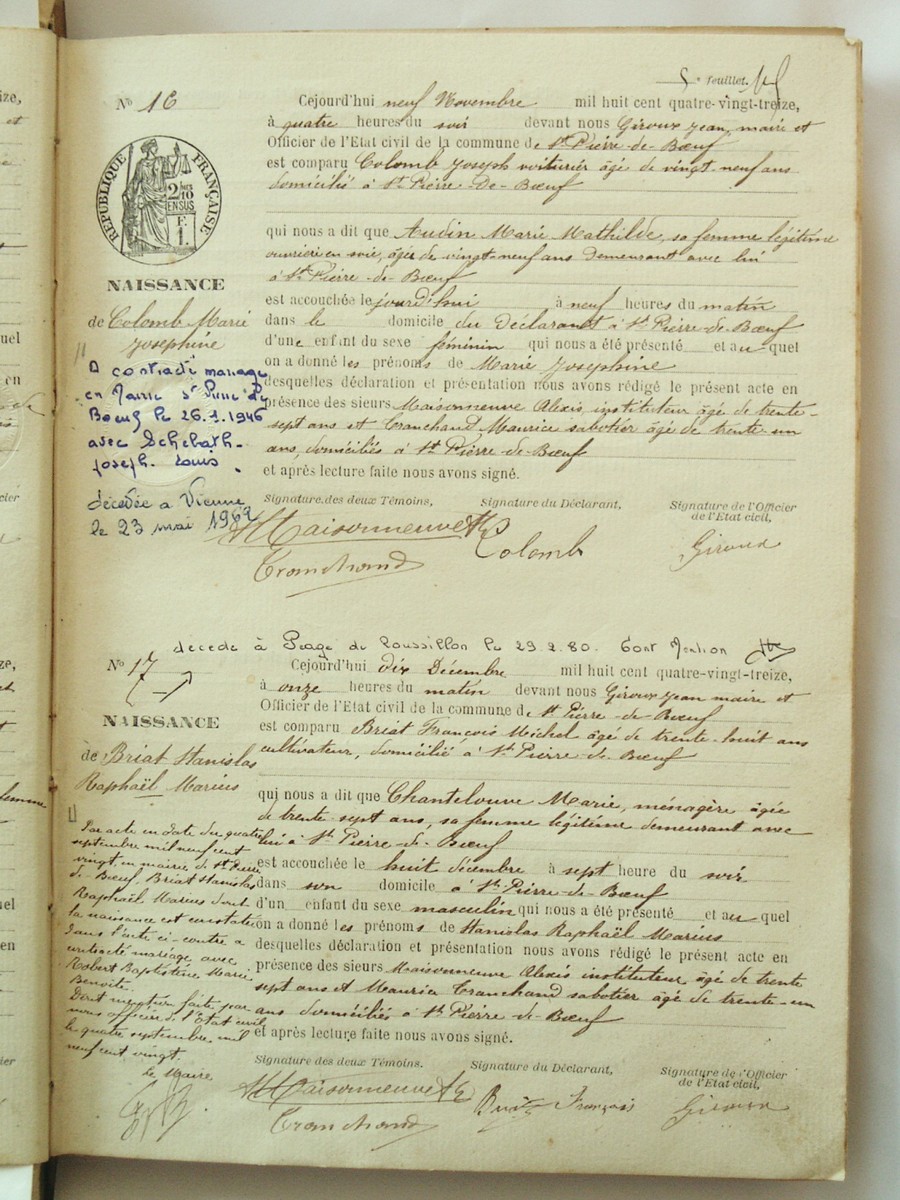 5e feuillet.
No 16
Cejourd'hui neuf Novembre mil huit cent quatre-vingt-treize,
à quatre heures du soir devant nous Giroux Jean, maire et
Officier de l'Etat civil de la commune de St Pierre-de-Bœuf
est comparu Colomb Joseph voiturier âgé de vingt neuf ans
domicilié à St Pierre-De-Bœuf
RÉPUBLIQUE FRANÇAISE
2/10 EN SUS
F. 1.
qui nous a dit que Audin Marie Mathilde, sa femme légitime
ouvrière en soie, âgée de vingt-neuf ans demeurant avec lui
à St Pierre-de-Bœuf
est accouchée le jourd'hui à neuf heures du matin
dans le domicile du Déclarant à St Pierre-de-Bœuf
d'une enfant du sexe féminin qui nous a été présenté et auquel
on a donné les prénoms de Marie Joséphine
desquelles déclaration et présentation nous avons rédigé le présent acte en
présence des sieurs Maisonneuve Alexis, instituteur âgé de trente-
sept ans et Tranchand Maurice sabotier âgé de trente-un
ans, domiciliés à St Pierre-de-Bœuf
et après lecture faite nous avons signé.
NAISSANCE
de Colomb Marie
Joséphine
A contracté mariage
en Mairie St Pierre de
Bœuf le 26.1.1946
avec
Joseph-Louis.
décédée à Vienne
le 23 mai 1962
Signature des deux Témoins, Signature du Déclarant, Signature de l'Officier
de l'Etat civil,
Maisonneuve Colomb Giroux
Tranchand
décédé à Péage de Roussillon le 29.2.80. Dont Mention
No 17
Cejourd'hui dix Décembre mil huit cent quatre-vingt-treize,
à onze heures du matin devant nous Giroux Jean maire et
Officier de l'Etat civil de la commune de St Pierre-de-Bœuf
est comparu Briat François Michel âgé de trente-huit ans
cultivateur, domicilié à St Pierre-de-Bœuf
qui nous a dit que Chantelouve Marie, ménagère âgée
de trente-sept ans, sa femme légitime demeurant avec
lui à St Pierre-de-Bœuf
est accouchée le huit décembre à sept heure du soir
dans son domicile à St Pierre-de-Bœuf
d'un enfant du sexe masculin qui nous a été présenté et auquel
on a donné les prénoms de Stanislas Raphaël Marius
desquelles déclaration et présentation nous avons rédigé le présent acte en
présence des sieurs Maisonneuve Alexis instituteur âgé de trente
sept ans et Maurice Tranchand sabotier âgé de trente-un
ans domiciliés à St Pierre-de-Bœuf
et après lecture faite nous avons signé.
NAISSANCE
de Briat Stanislas
Raphaël Marius
Par acte en date du quatre
septembre mil neuf cent
vingt, en mairie de St Pierre
de-Bœuf, Briat Stanislas
Raphaël Marius dont
la naissance est constatée
dans l'acte ci-contre a
contracté mariage avec
Robert Baptistine Marie
Benoite.
Dont mention faite par
nous officier de l'Etat civil
le quatre septembre mil
neuf cent vingt.
Le Maire
Signature des deux Témoins, Signature du Déclarant, Signature de l'Officier
de l'Etat civil,
Maisonneuve Briat François Giroux
Tranchand